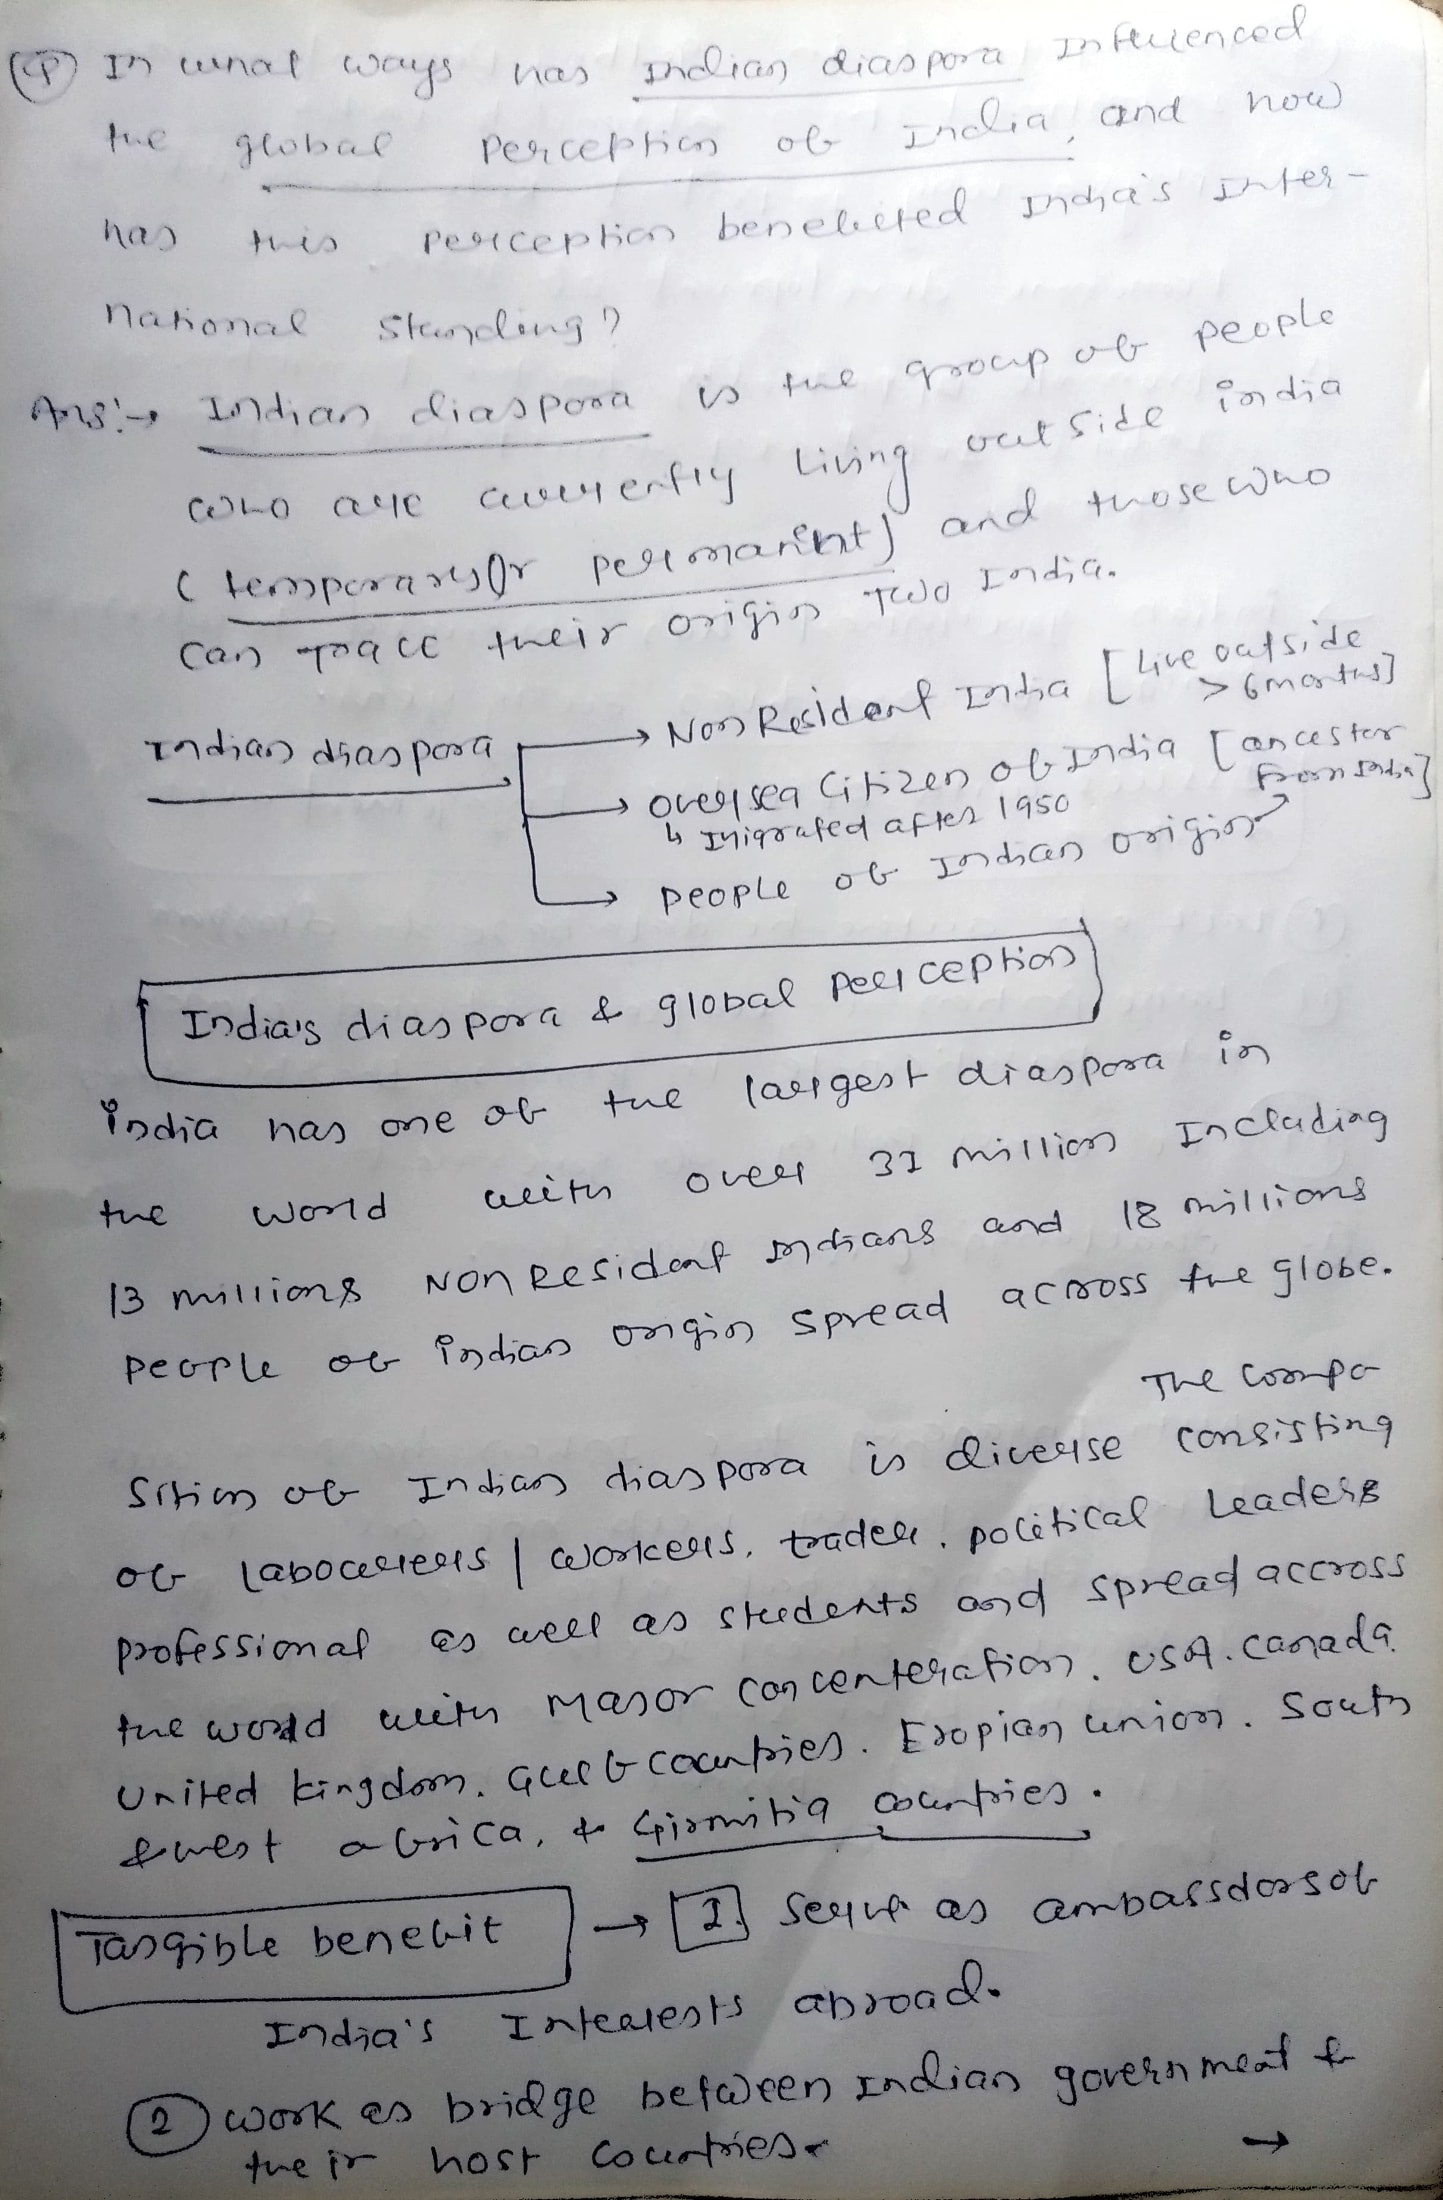 (Q) In what ways has Indian diaspora Influenced
the global perception of India, and how
has this perception benefited India's Inter-
national standing?
Ans:→ Indian diaspora is the group of people
who are currently living outside india
(temporary or permanint) and those who
can trace their origin two India.
Indian diaspora → Non Resident India [Live outside
> 6 months]
→ oversea Citizen of India [ancester
from India]
↳ Imigrated after 1950
→ people of Indian origin
India's diaspora & global perception
india has one of the largest diaspora in
the world with over 31 million Including
13 millions Non Resident Indians and 18 millions
people of indian origin spread across the globe.
The compo
sition of Indian diaspora is diverse consisting
of labourers / workers, trader, political Leaders
professional as well as students and spread accross
the world with Major concenteration, USA. Canada.
United kingdom, Gulf countries. Eropian union. South
& west africa, & Girmitia countries.
Tangible benefit → 1. Serve as ambassdors of
India's Interests abroad.
(2) work as bridge between Indian government &
their host countries.
→